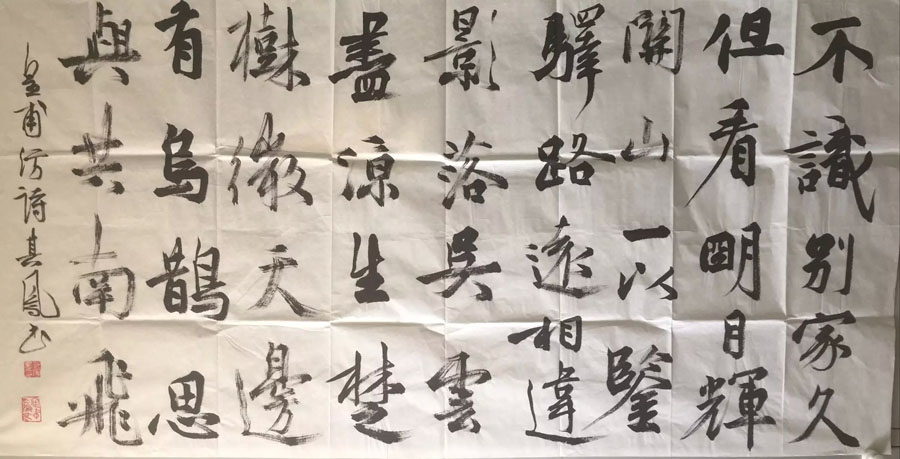 不識別家久
但看明月輝
關山一以鑒
驛路遠相違
影落吳雲
盡涼生楚
樹微天邊
有烏鵲思
與共南飛
皇甫汸詩其鳳书